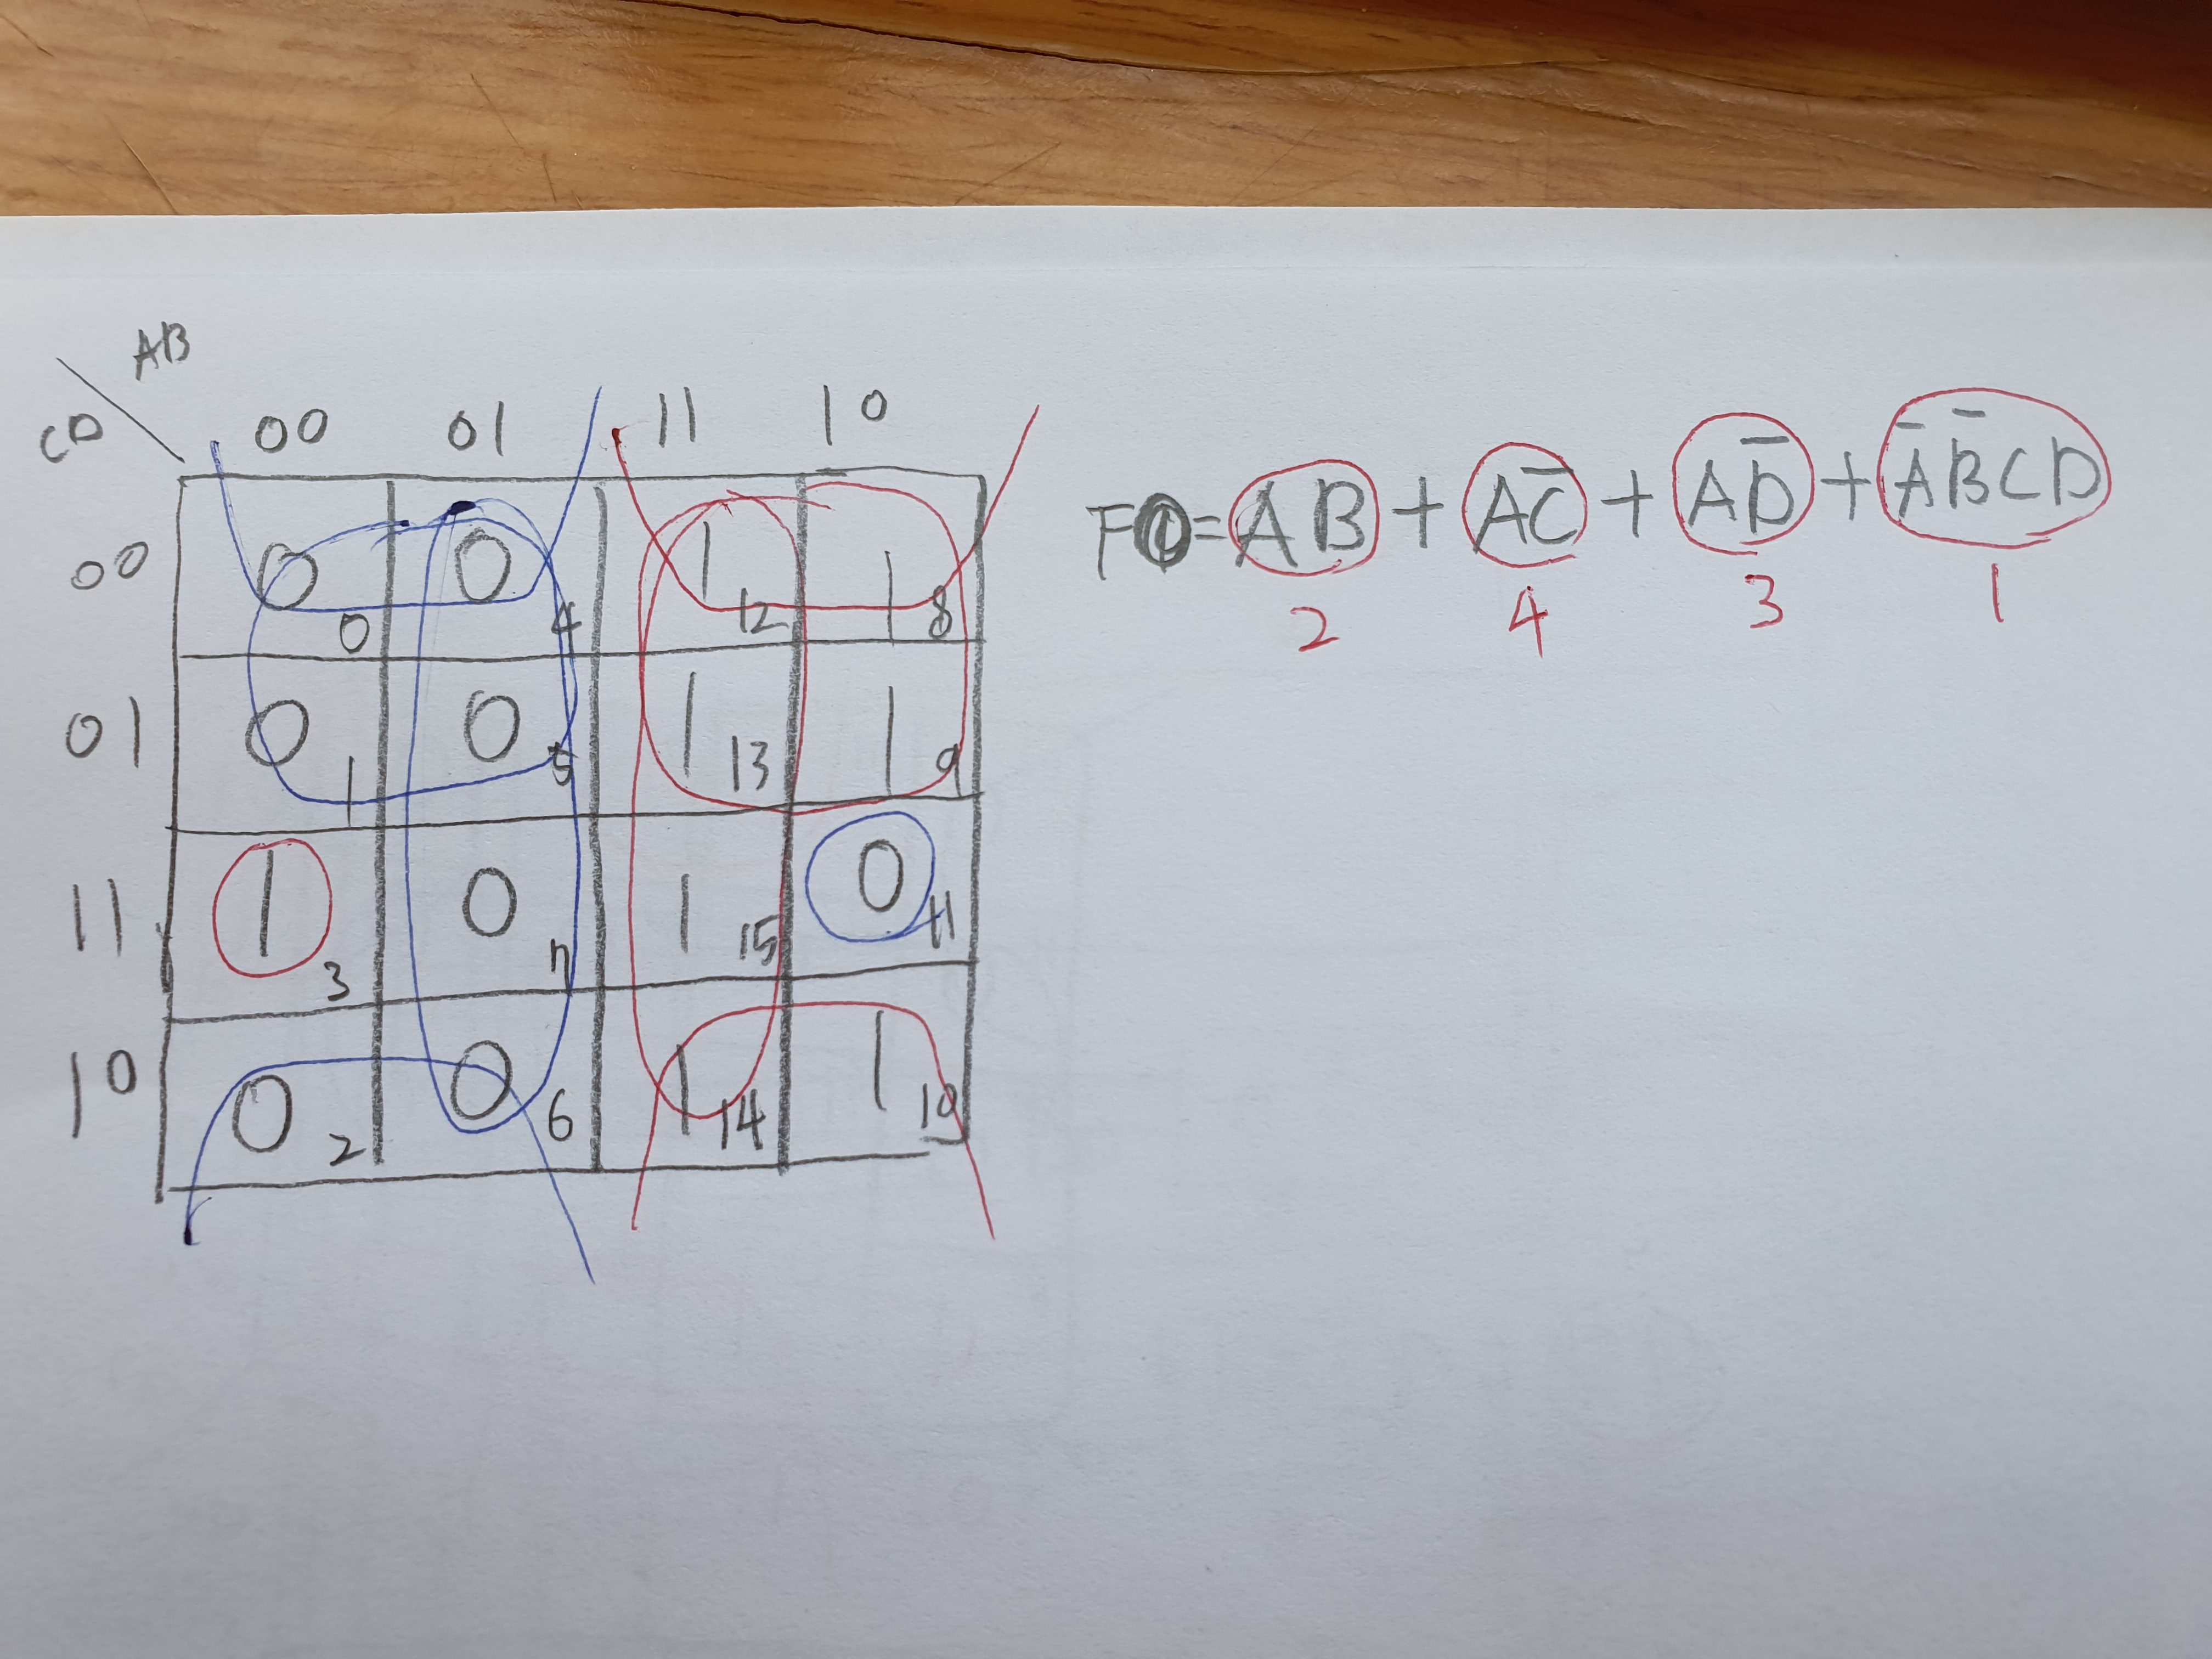 CD / AB
00 01 11 10
00 0 0 0 4 1 12 1 8
01 0 1 0 5 1 13 1 9
11 1 3 0 7 1 15 0 11
10 0 2 0 6 1 14 1 10
F = AB + AC̅ + AD̅ + A̅B̅CD
2 4 3 1